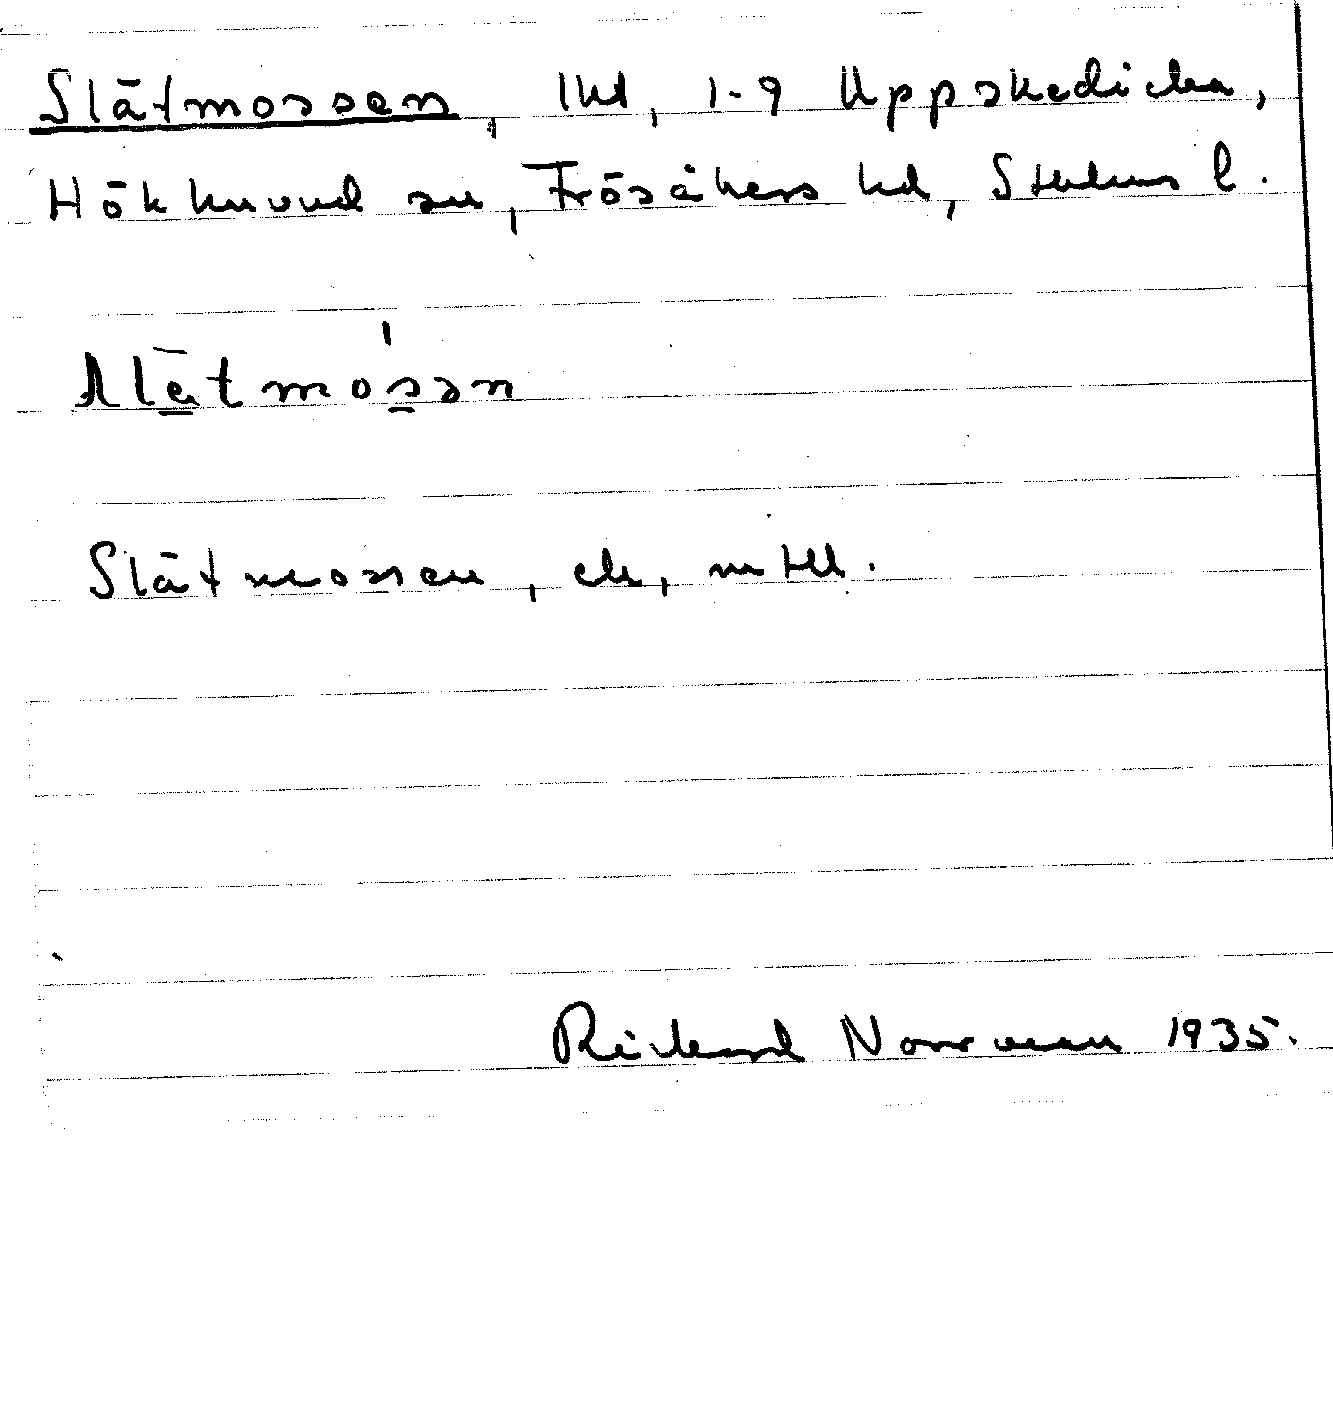 Slätmossen, 1-9 Uppskedicka,
Hökhuvud sn, Frösåkers hd, Sthlms l.
slätmosən
Slätmossen, ek,
Rickard Norrman 1935.